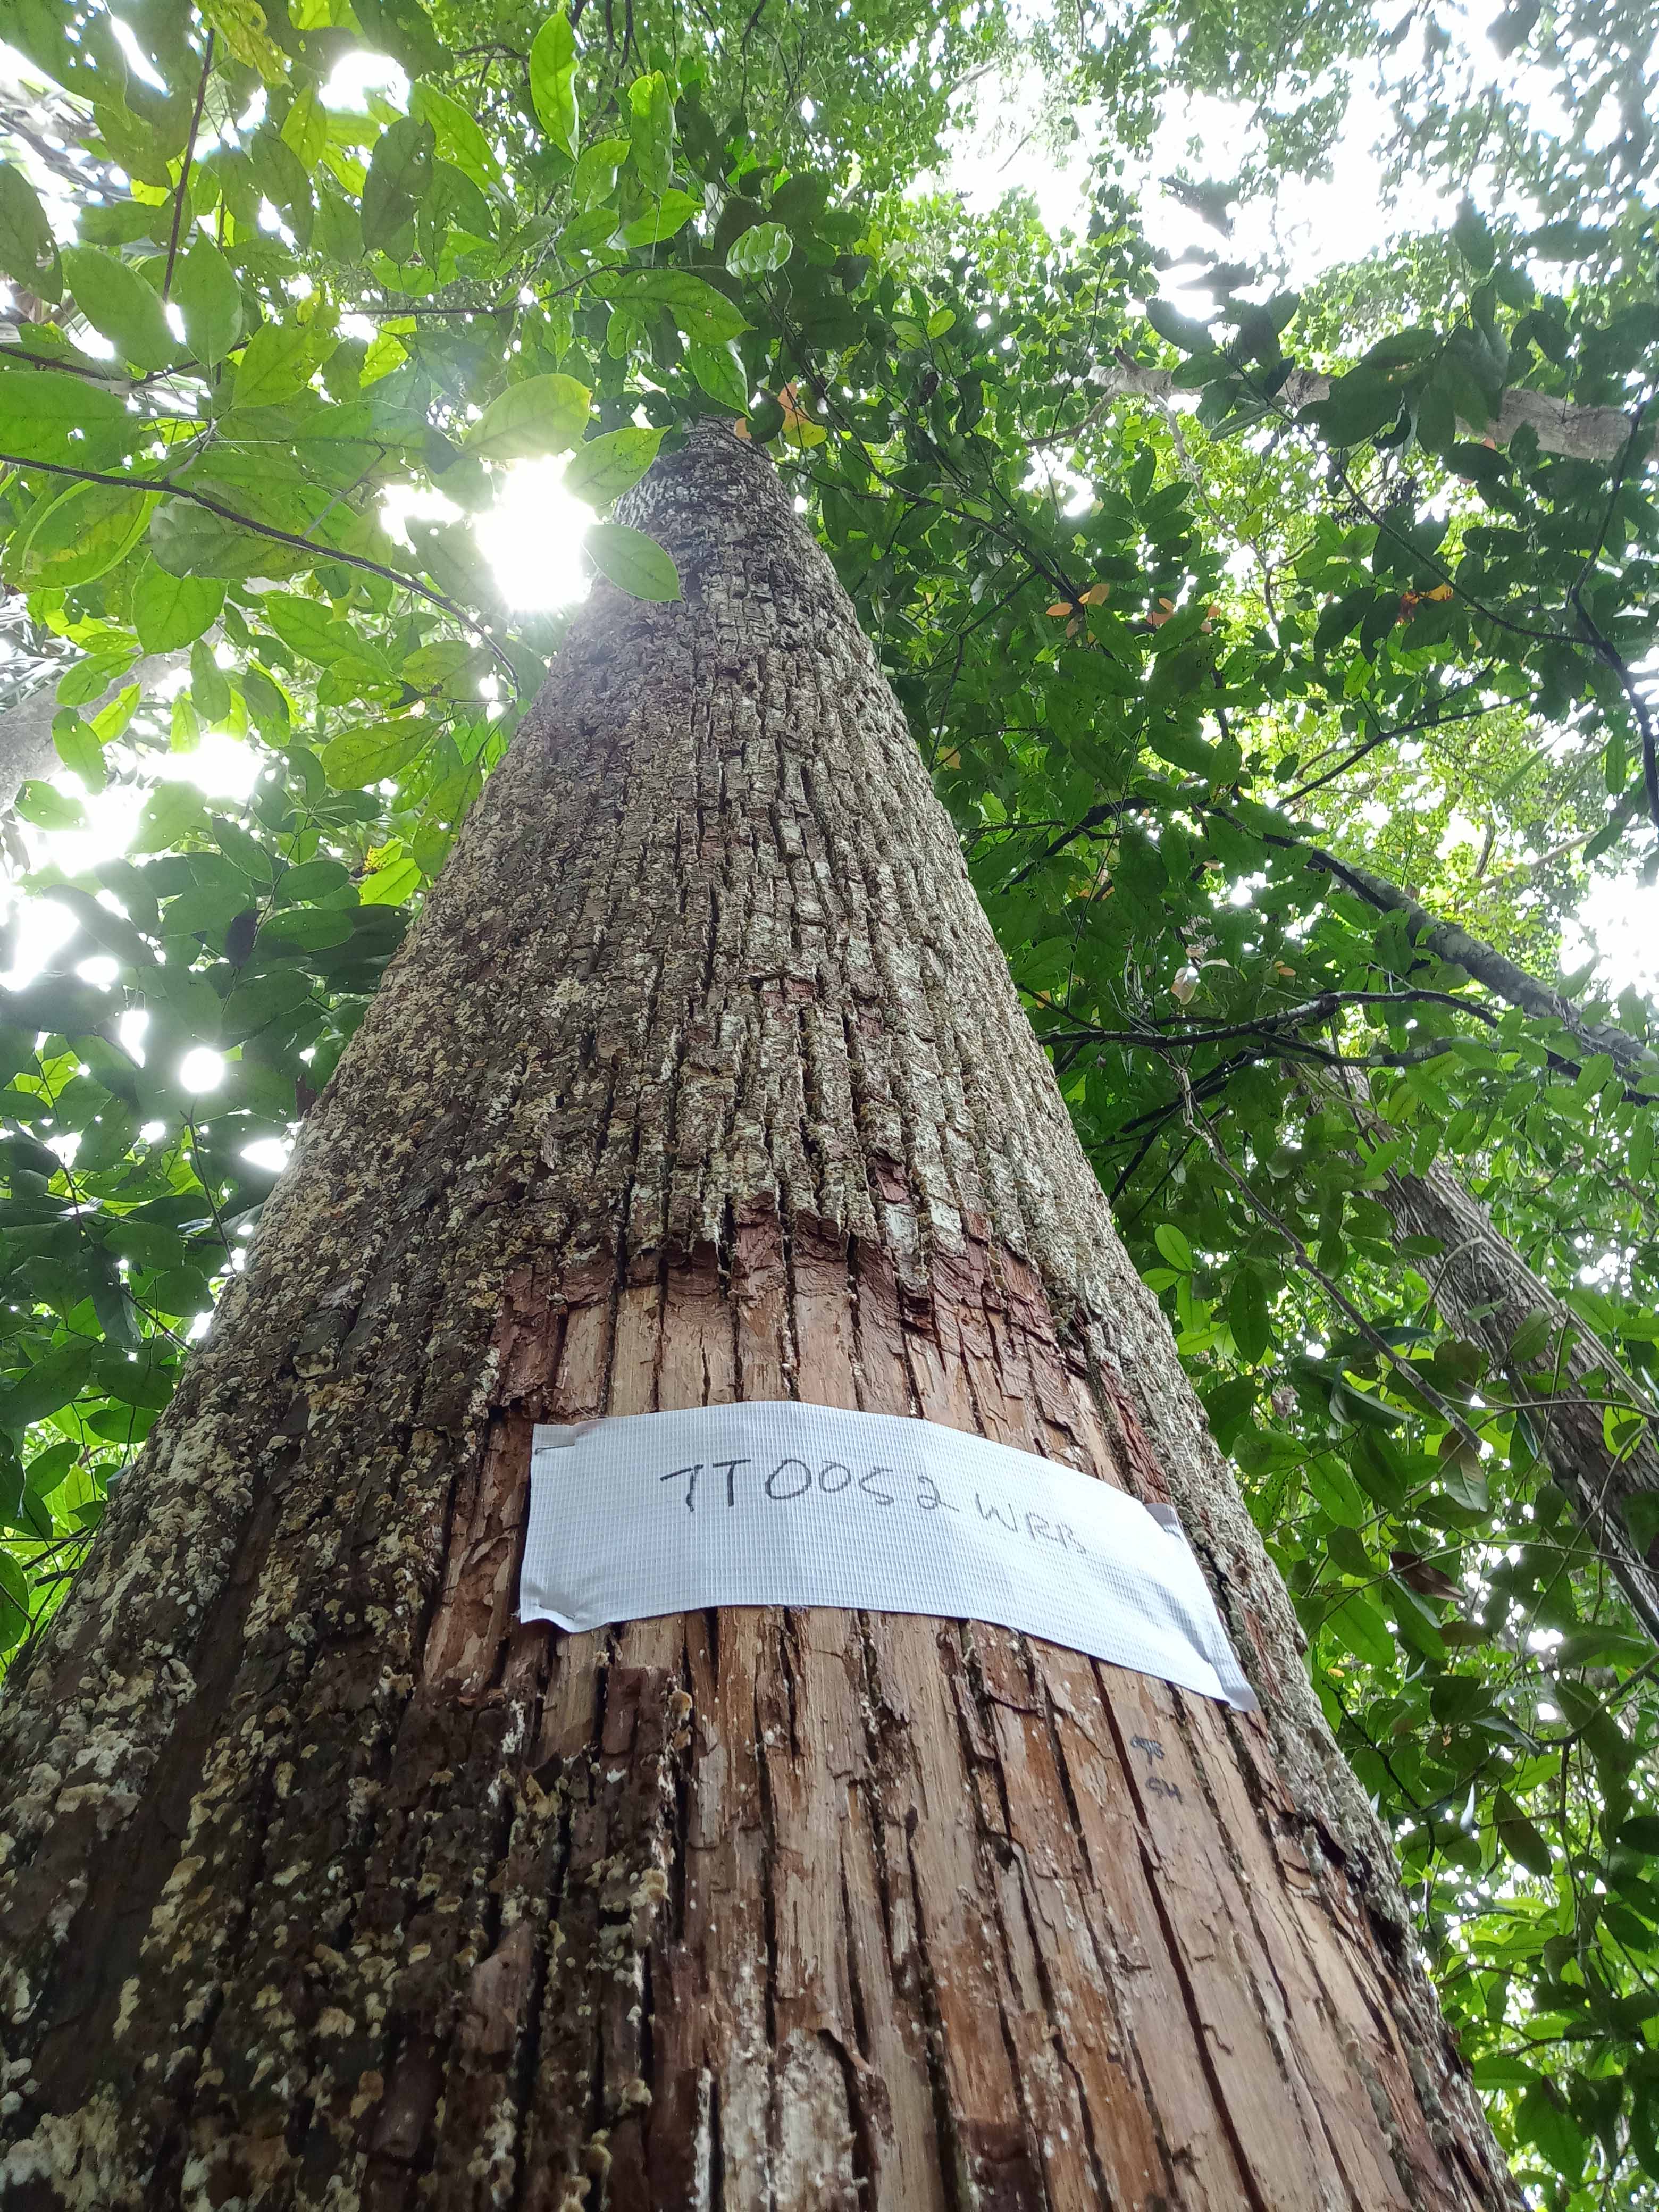 7T0052 WRB